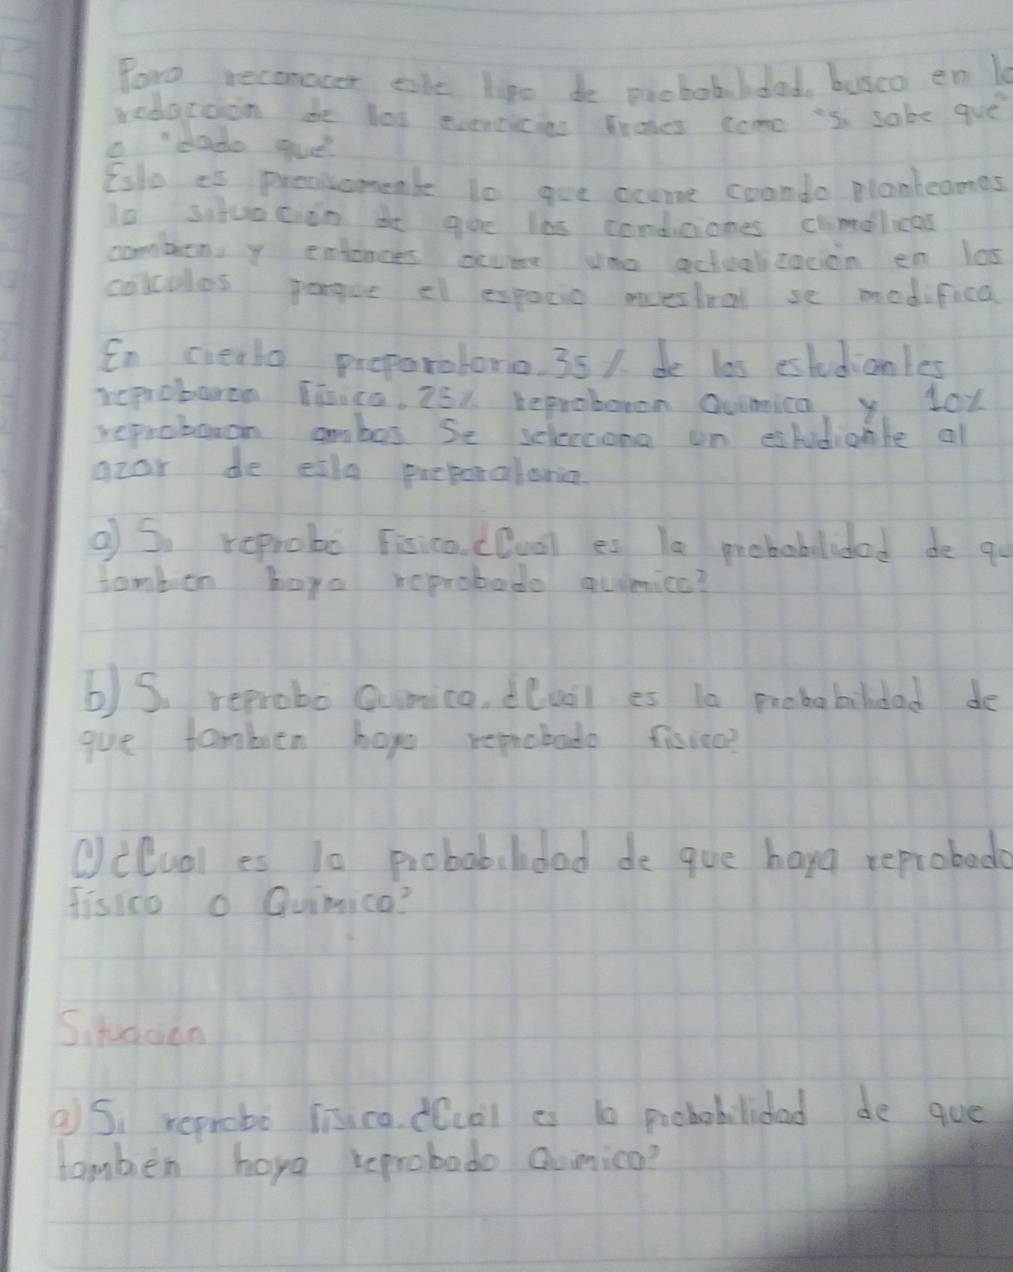 Para reconocer este tipo de probabilidad, busca en la
redacción de los ejercicios frases como "si sabe que
o "dado que"
Esto es precisamente lo que ocurre cuando planteamos
la situación de que las condiciones climálicas
cambien, y entonces ocurre una actualización en los
calculos porque el espacio muestral se modifica
En cierta preparatoria. 35% de los estudiantes
reprobaron Física, 25% reprobaron Quimica y 10%
reprobaron ambas Se selecciona un estudiante al
azar de esta preparatoria.
a) Si reprobó Física. ¿Cuál es la probabilidad de qu
tambien haya reprobado quimica?
b) Si reprobo Quimica, ¿Cuál es la probabilidad de
que tambien haya reprobado física?
C) ¿Cual es la probabilidad de que haya reprobado
física o Quimica?
Situación
a) Si reprobó física. ¿Cuál es la probabilidad de que
tambén haya reprobado Quimica?